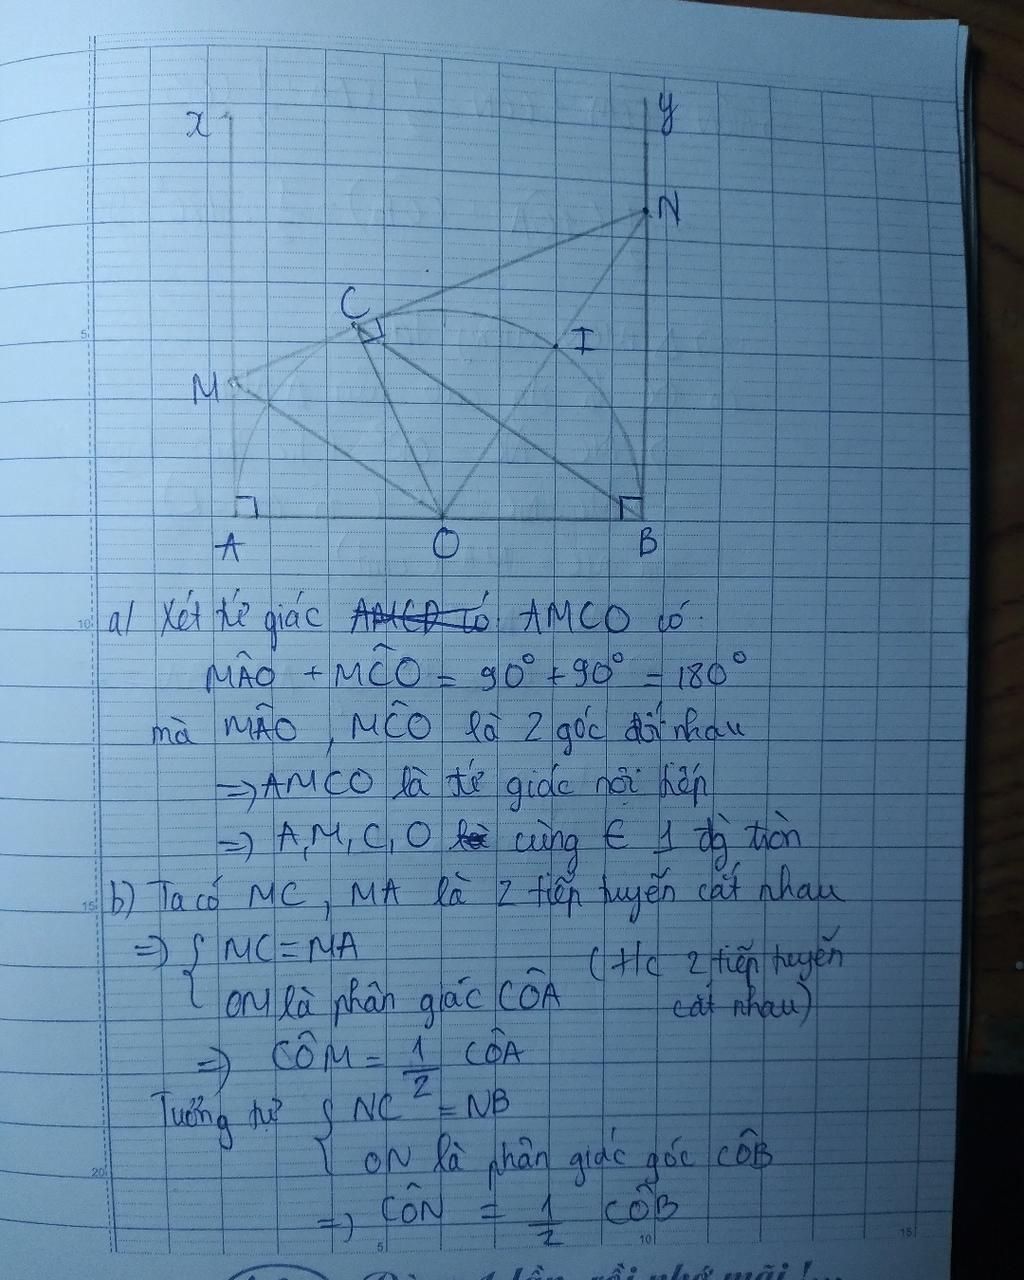 x
y
N
C
I
M
A
O
B
5
10
a) Xét tứ giác AMCO có
MÂO + MĈO = 90° + 90° = 180°
mà MÂO, MĈO là 2 góc đối nhau
=> AMCO là tứ giác nội tiếp
=> A, M, C, O cùng ∈ 1 đg tròn
15
b) Ta có MC, MA là 2 tiếp tuyến cắt nhau
=> { MC = MA
OM là phân giác CÔA
(t/c 2 tiếp tuyến
cắt nhau)
=> CÔM = 1/2 CÔA
Tương tự { NC = NB
ON là phân giác góc CÔB
20
=> CÔN = 1/2 CÔB
5
10
15